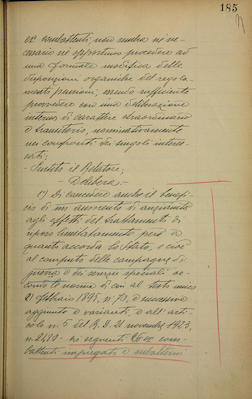 185
ex combattenti, non crede nè ne-
cessario nè opportuno procedere ad
una formale modifica delle
disposizioni organiche del regola-
mento pensioni, essendo sufficiente
provvedere con una deliberazione
interna di carattere straordinario
e transitorio, nominativamente
nei confronti dei singoli interes-
sati;
- Sentito il Relatore;
- Delibera -
1°) Di concedere anche il benefi-
cio di un aumento di anzianità
agli effetti del trattamento di
riposo limitatamente però a
quanto accorda lo Stato, e cioè
al computo delle campagne di
guerra e dei servizi speciali se-
condo le norme di cui al testo unico
21 febbraio 1895, n. 70, e successive
aggiunte e varianti, e all'arti-
colo n. 5 del R. D. 21 novembre 1923,
n. 2480 - ai seguenti ex com-
battenti impiegati e salariati